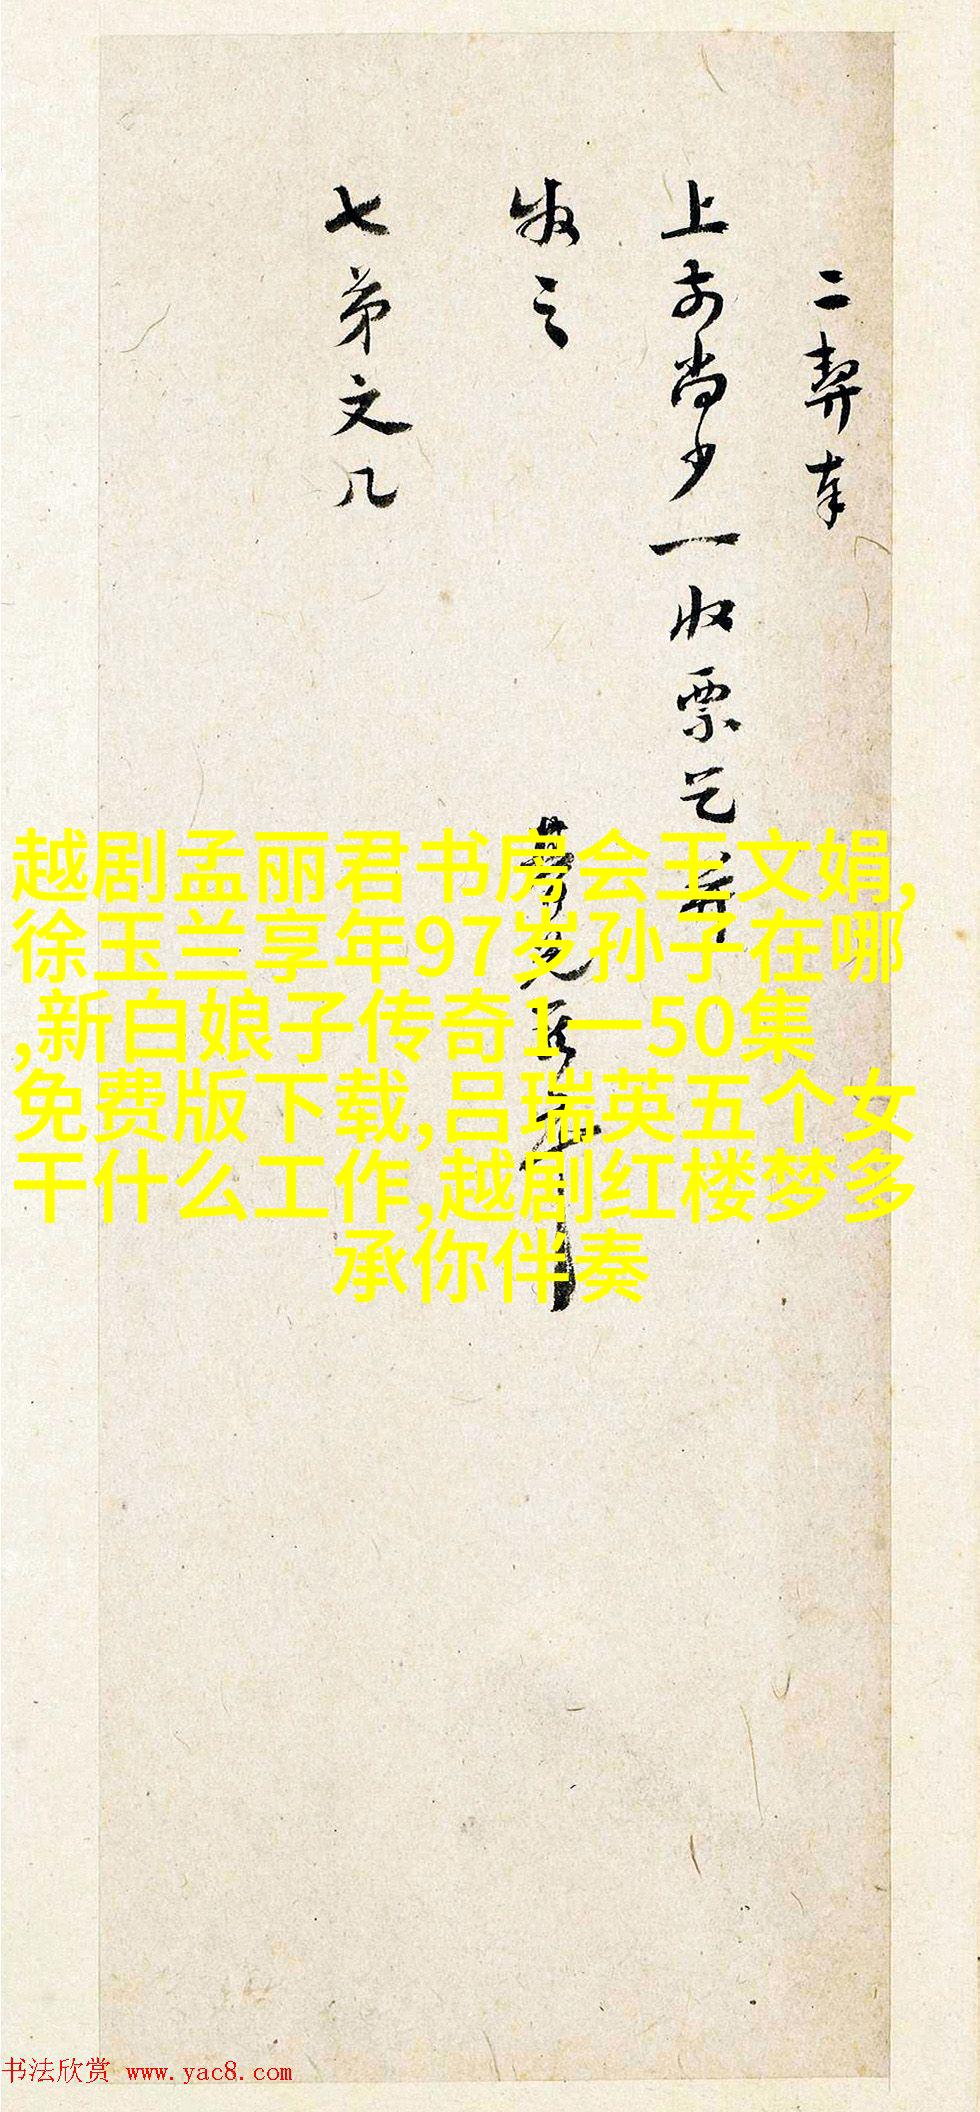 二契奉
上前尚少一收票乞并
收之
七弟文几
越剧孟丽君书房会王文娟,
徐玉兰享年97岁孙子在哪
,新白娘子传奇1一50集
免费版下载,吕瑞英五个女
干什么工作,越剧红楼梦多
承你伴奏
书法欣赏 www.yac8.com